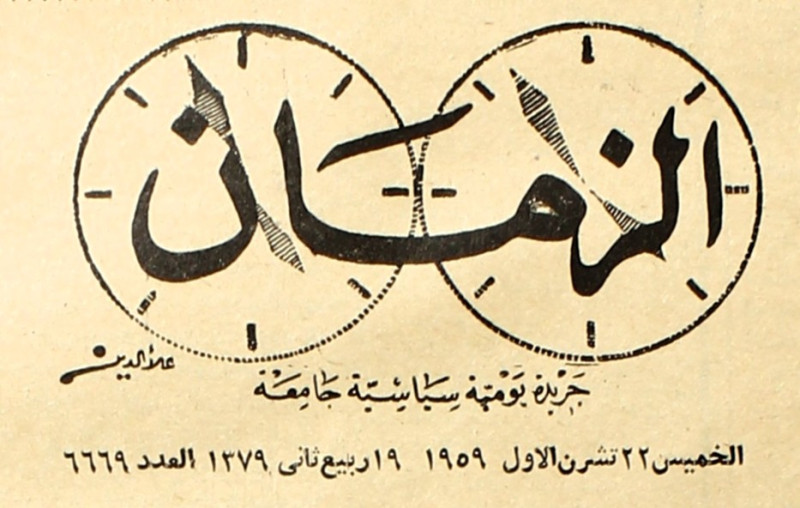 الزمان
علاءالدين
جَريدة يَوْميّة سِيَاسِيّة جَامِعَة
الخميس ٢٢ تشرن الاول ١٩٥٩ ١٩ ربيع ثانى ١٣٧٩ العدد ٦٦٦٩